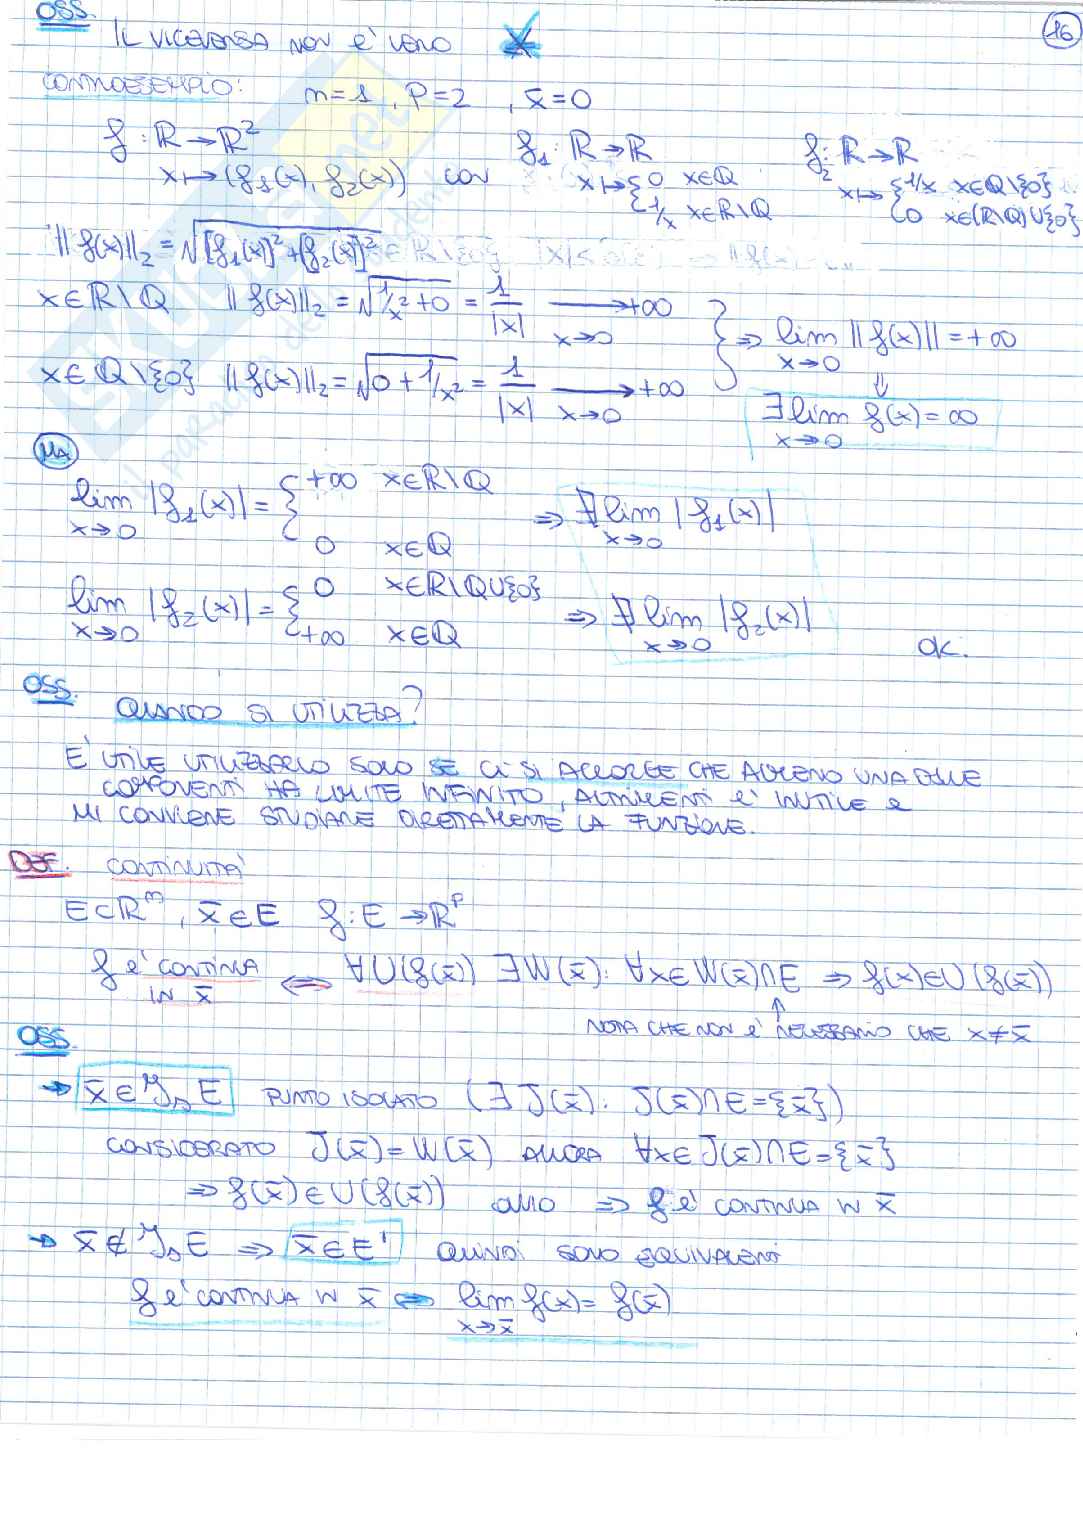 OSS.
16
IL VICEVERSA NON E' VERO
CONTROESEMPIO: n=1, P=2, x̄=0
f: ℝ→ℝ² f₁: ℝ→ℝ f₂: ℝ→ℝ
x↦(f₁(x), f₂(x)) con x↦{0 x∈ℚ x↦{1/x x∈ℚ\{0}
{1/x x∈ℝ\ℚ {0 x∈(ℝ\ℚ)∪{0}
||f(x)||₂ = √([f₁(x)]²+[f₂(x)]²)
x∈ℝ\ℚ ||f(x)||₂ = √(1/x²+0) = 1/|x| ⟶ +∞ x→0
} ⇒ lim x→0 ||f(x)|| = +∞
x∈ℚ\{0} ||f(x)||₂ = √(0+1/x²) = 1/|x| ⟶ +∞ x→0
⇓
∃ lim x→0 f(x) = ∞
MA
lim x→0 |f₁(x)| = { +∞ x∈ℝ\ℚ
0 x∈ℚ ⇒ ∄ lim x→0 |f₁(x)|
lim x→0 |f₂(x)| = { 0 x∈ℝ\ℚ∪{0}
+∞ x∈ℚ ⇒ ∄ lim x→0 |f₂(x)| ok.
OSS. QUANDO SI UTILIZZA?
E' UTILE UTILIZZARLO SOLO SE CI SI ACCORGE CHE ALMENO UNA DELLE
COMPONENTI HA LIMITE INFINITO, ALTRIMENTI E' INUTILE E
MI CONVIENE STUDIARE DIRETTAMENTE LA FUNZIONE.
DEF. CONTINUITÀ
E⊂ℝᵐ, x̄∈E f: E→ℝᵖ
f e' CONTINUA IN x̄ ⟺ ∀U(f(x̄)) ∃W(x̄): ∀x∈W(x̄)∩E ⇒ f(x)∈U(f(x̄))
↑
NOTA CHE NON E' NECESSARIO CHE x≠x̄
OSS.
→ x̄∈ℐₛE PUNTO ISOLATO (∃J(x̄): J(x̄)∩E={x̄})
CONSIDERATO J(x̄)=W(x̄) ALLORA ∀x∈J(x̄)∩E={x̄}
⇒ f(x̄)∈U(f(x̄)) ovvio ⇒ f e' CONTINUA IN x̄
→ x̄∉ℐₛE ⇒ x̄∈E' QUINDI SONO EQUIVALENTI
f e' CONTINUA IN x̄ ⟺ lim x→x̄ f(x) = f(x̄)